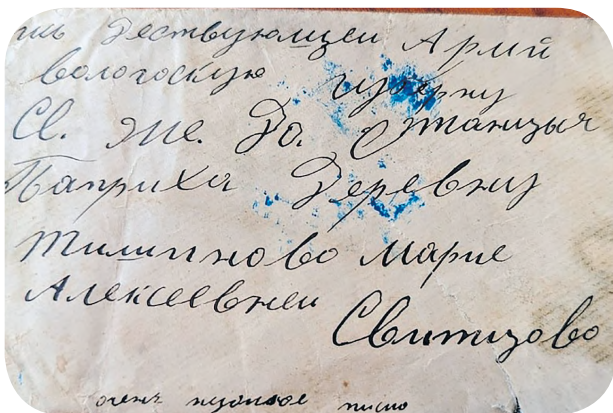 Дествующеи Армй
вологоскую губерню
Св. же. До. Станцыя
Паприха Деревню
Филипново Марие
Алексеевнеи
Свитцово
очень нужное писмо